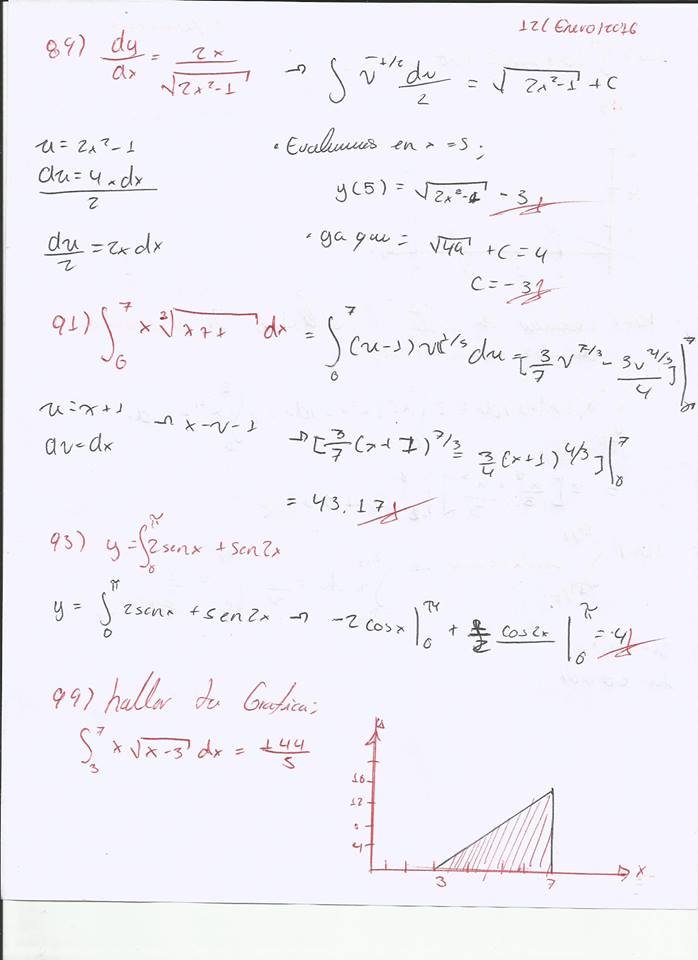 12/Enero/2016
89) dy/dx = 2x/√(2x²-1) → ∫ u^(-1/2) du/2 = √(2x²-1) + C
u = 2x²-1
du = 4x dx
2
du/2 = 2x dx
• Evaluamos en x = 5;
y(5) = √(2x²-1) - 3
• ya que = √49 + C = 4
C = -3
91) ∫₀⁷ x ³√(x+1) dx = ∫₀⁷ (u-1) u^(1/3) du = [3/7 u^(7/3) - 3u^(4/3)/4] |₀⁷
u = x+1 → x = u-1
du = dx
→ [3/7 (x+1)^(7/3) = 3/4 (x+1)^(4/3)] |₀⁷
= 43.17
93) y = ∫₀^π 2senx + sen2x
y = ∫₀^π 2senx + sen2x → -2cosx |₀^π + cos2x |₀^π = 4
99) hallar tu Grafica;
∫₃⁷ x √(x-3) dx = 144/5
16
12
8
4
3 7 x